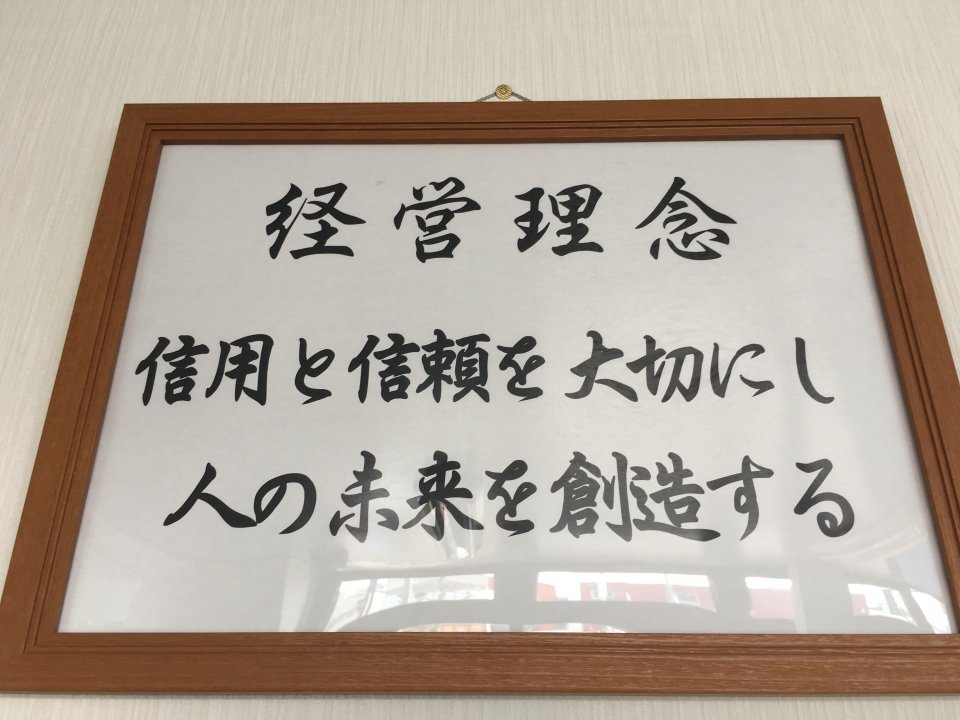 経営理念
信用と信頼を大切にし
人の未来を創造する